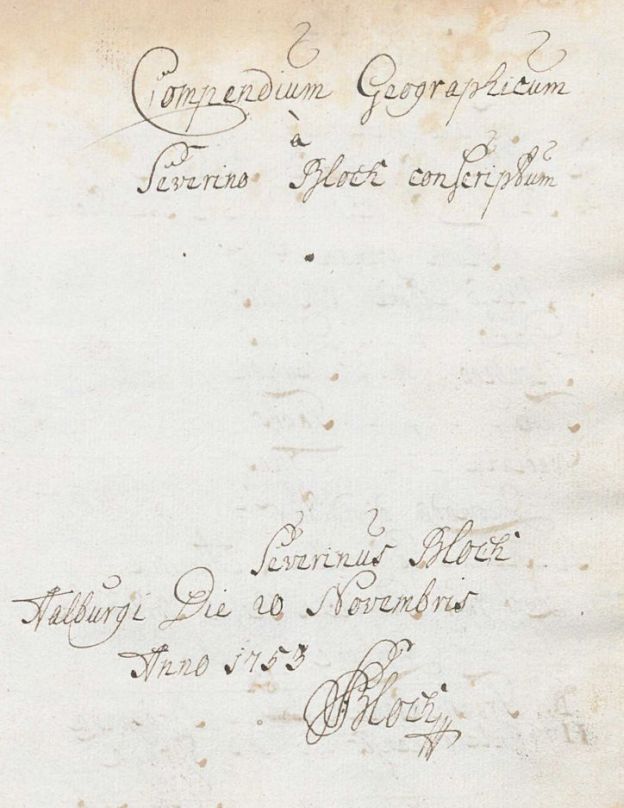 Compendium Geographicum
à
Severino Bloch conscriptum
Severinus Bloch
Aalburgi Die 20 Novembris
Anno 1753
SBloch